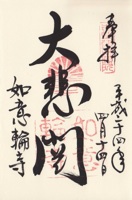 奉拝
平成二十四年
四月十四日
大悲閣
如意輪寺